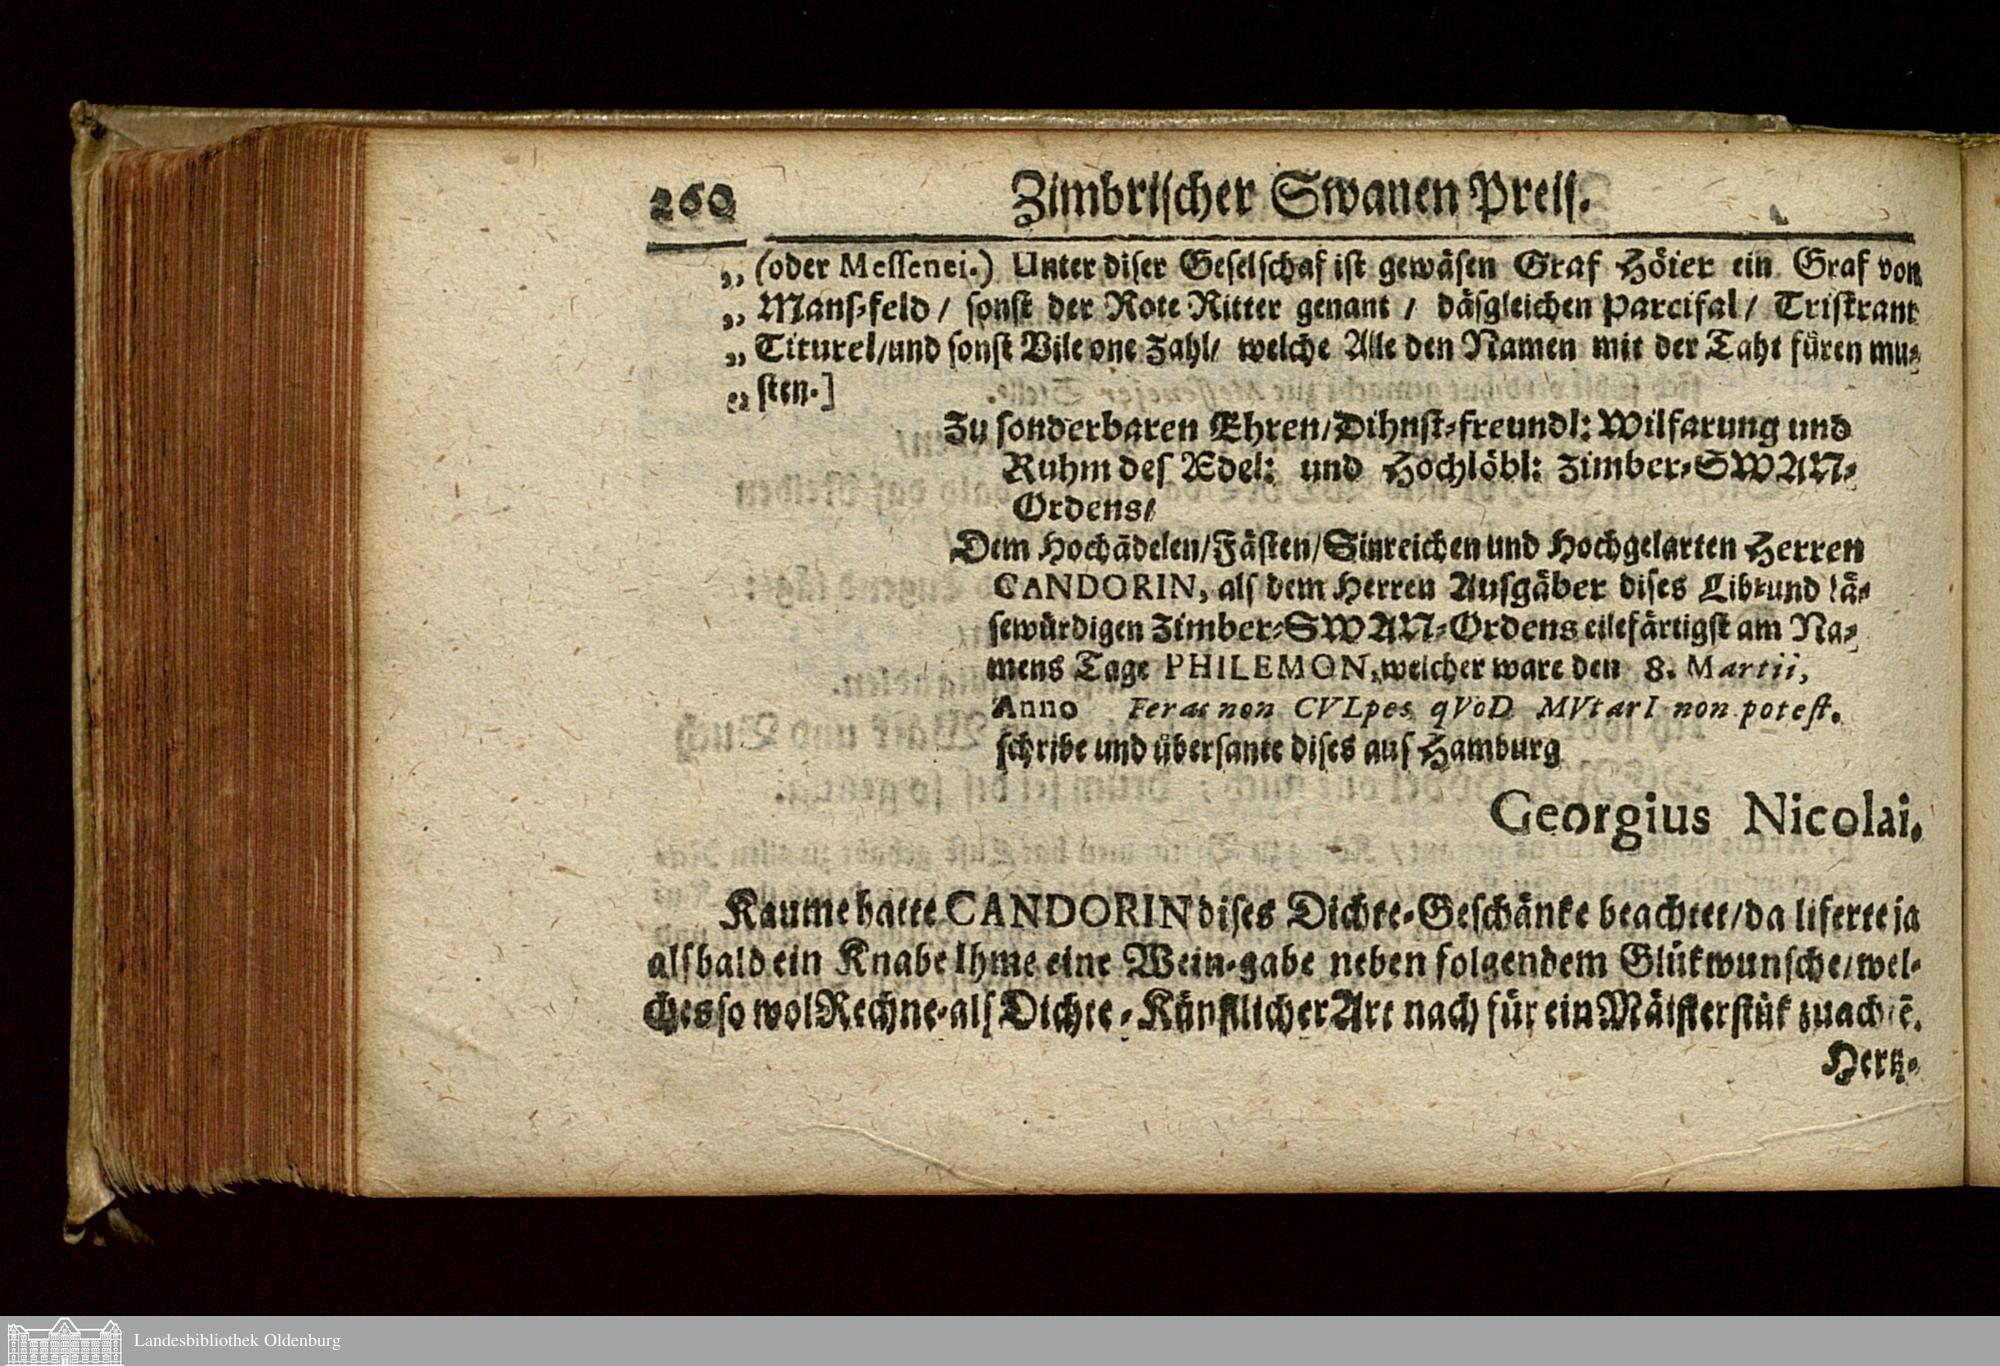 260 Zimbrischer Swanen Preis.
„ (oder Messenei.) Unter diser Geselschaf ist gewäsen Graf Höier ein Graf von
„ Mans-feld / sonst der Rote Ritter genant / däsgleichen Parcifal / Tristrant
„ Titurel/und sonst Vile one Zahl/ welche Alle den Namen mit der Taht füren mu-
„ sten.]
Zu sonderbaren Ehren/Dihnst-freundl: Wilfarung und
Ruhm des Ædel: und Hochlöbl: Zimber-SWAN-
Ordens/
Dem Hochädelen/Fästen/Sinreichen und Hochgelarten Herren
CANDORIN, als dem Herren Ausgäber dises Lib-und lä-
sewürdigen Zimber-SWAN-Ordens eilefärtigst am Na-
mens Tage PHILEMON, welcher ware den 8. Martii,
Anno Feras non CVLpes qVoD MVtarI non potest.
schribe und übersante dises aus Hamburg
Georgius Nicolai.
Kaume hatte CANDORIN dises Dichte-Geschänke beachtet/da liferte ja
alsbald ein Knabe Ihme eine Wein-gabe neben folgendem Glükwunsche/wel-
ches so wol Rechne-als Dichte-Künstlicher Art nach für ein Mäisterstük zuachtē.
Hertz-
Landesbibliothek Oldenburg